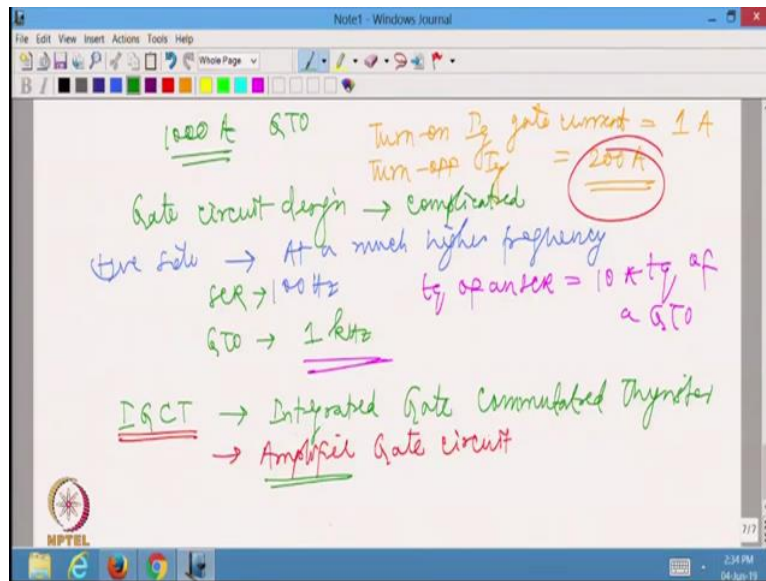 Note1 - Windows Journal
File Edit View Insert Actions Tools Help
Whole Page
B I
1000 A GTO
Turn-on Ig gate current = 1 A
Turn-off Ig = 200 A
Gate circuit design → complicated
+ive side → At a much higher frequency
SCR → 100 Hz
tq of an SCR = 10 * tq of
a GTO
GTO → 1 kHz
IGCT → Integrated Gate Commutated Thyristor
→ Amplifier Gate circuit
NPTEL
7/7
2:34 PM
04-Jun-19